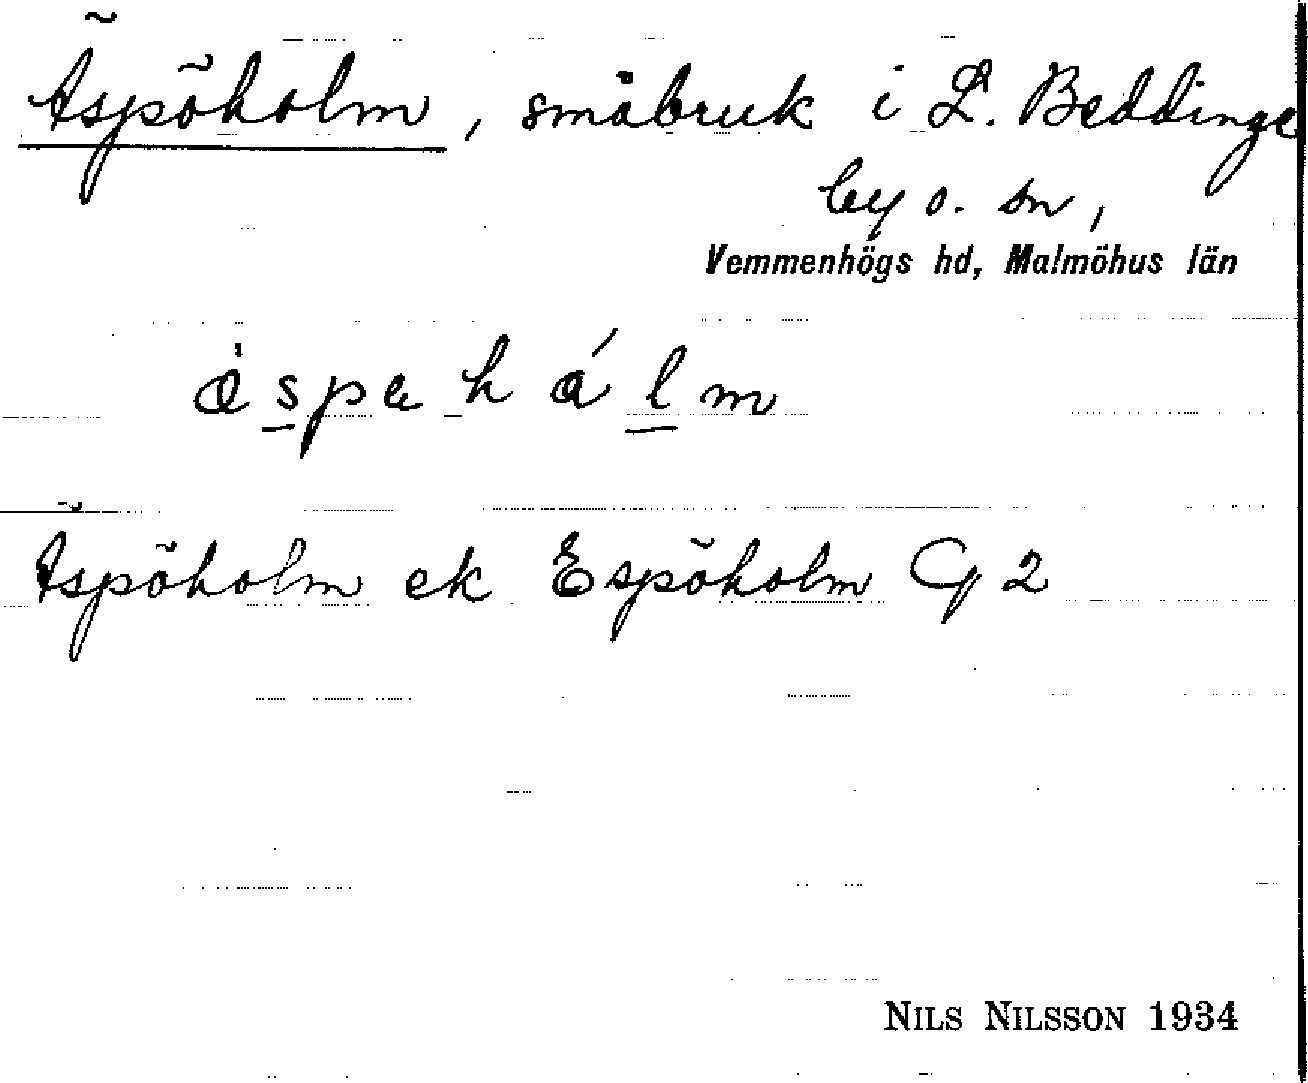 Äspöholm, småbruk i L. Beddinge
by o. sn,
Vemmenhögs hd, Malmöhus län
Äspöholm ek Espöholm G 2
NILS NILSSON 1934